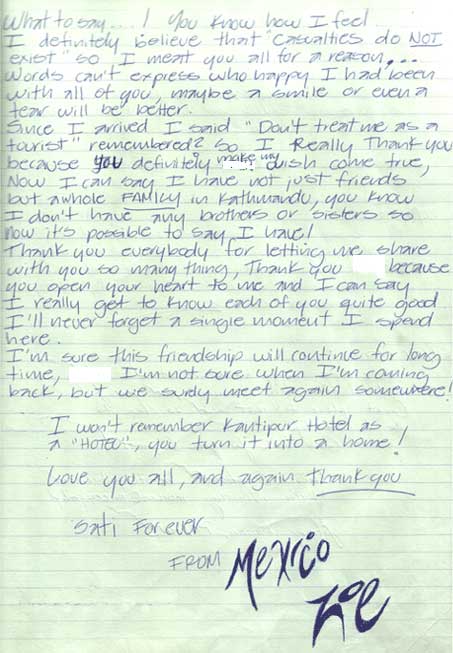 What to say....! You know how I feel
I definitely believe that "Casualties do NOT
exist" so I meat you all for a reason...
Words can't express who happy I had been
with all of you, maybe a smile or even a
tear will be better.
Since I arrived I said "Don't treat me as a
tourist" remembered? So I Really Thank you
because you definitely make my wish come true,
Now I can say I have not just friends
but a whole FAMILY in Kathmandu, you know
I don't have any brothers or sisters so
now it's possible to say I have!
Thank you everybody for letting me share
with you so many thing, Thank you because
you open your heart to me and I can say
I really get to know each of you quite good
I'll never forget a single moment I spend
here.
I'm sure this friendship will continue for long
time, I'm not sure when I'm coming
back, but we surely meet again somewhere!
I won't remember Kantipur Hotel as
a "HOTEL", you turn it into a home!
Love you all, and again thank you
Sati Forever
FROM Mexico
Zoe